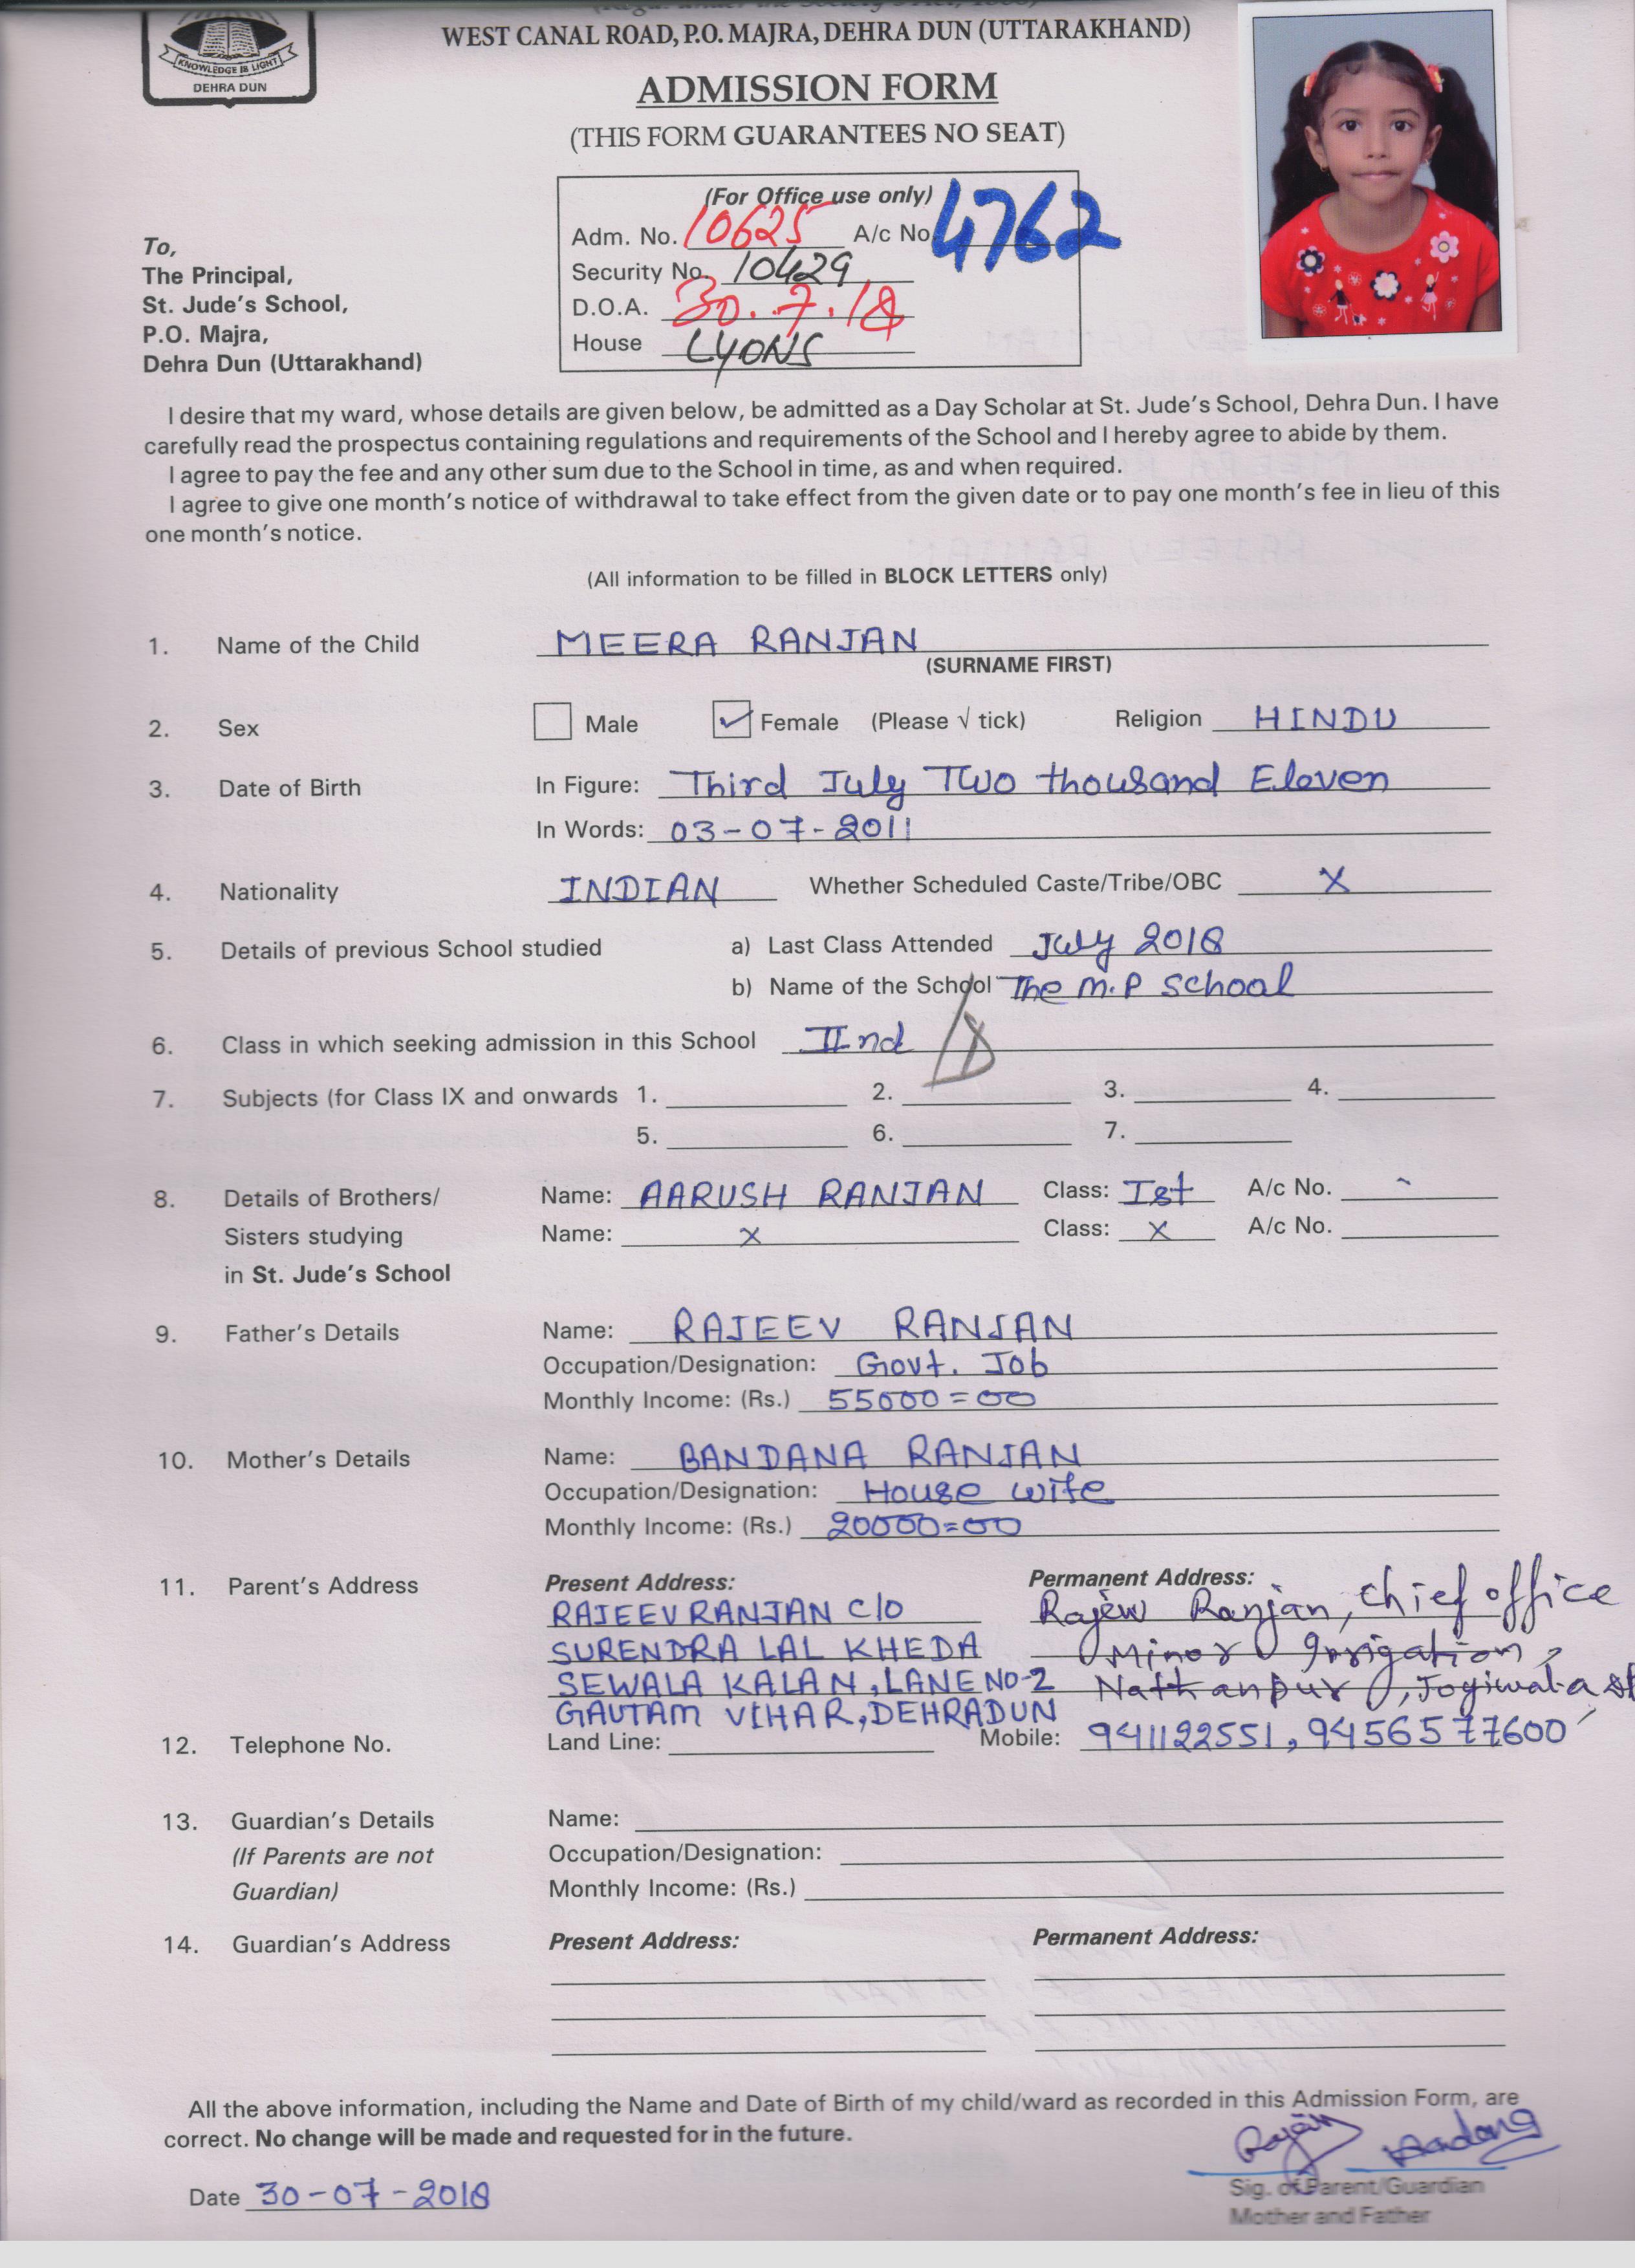 KNOWLEDGE IS LIGHT
DEHRA DUN
WEST CANAL ROAD, P.O. MAJRA, DEHRA DUN (UTTARAKHAND)
ADMISSION FORM
(THIS FORM GUARANTEES NO SEAT)
(For Office use only)
Adm. No. 10625 A/c No 4762
Security No. 10429
D.O.A. 30.7.18
House LYONS
To,
The Principal,
St. Jude's School,
P.O. Majra,
Dehra Dun (Uttarakhand)
I desire that my ward, whose details are given below, be admitted as a Day Scholar at St. Jude's School, Dehra Dun. I have
carefully read the prospectus containing regulations and requirements of the School and I hereby agree to abide by them.
I agree to pay the fee and any other sum due to the School in time, as and when required.
I agree to give one month's notice of withdrawal to take effect from the given date or to pay one month's fee in lieu of this
one month's notice.
(All information to be filled in BLOCK LETTERS only)
1. Name of the Child MEERA RANJAN
(SURNAME FIRST)
2. Sex Male ✓ Female (Please √ tick) Religion HINDU
3. Date of Birth In Figure: Third July Two thousand Eleven
In Words: 03-07-2011
4. Nationality INDIAN Whether Scheduled Caste/Tribe/OBC X
5. Details of previous School studied a) Last Class Attended July 2018
b) Name of the School The M.P School
6. Class in which seeking admission in this School IInd
7. Subjects (for Class IX and onwards 1. 2. 3. 4.
5. 6. 7.
8. Details of Brothers/ Name: AARUSH RANJAN Class: Ist A/c No. -
Sisters studying Name: X Class: X A/c No.
in St. Jude's School
9. Father's Details Name: RAJEEV RANJAN
Occupation/Designation: Govt. Job
Monthly Income: (Rs.) 55000=00
10. Mother's Details Name: BANDANA RANJAN
Occupation/Designation: House wife
Monthly Income: (Rs.) 20000=00
11. Parent's Address Present Address: Permanent Address:
RAJEEV RANJAN C/O Rajeev Ranjan, Chief office
SURENDRA LAL KHEDA Minor Irrigation,
SEWALA KALAN, LANE NO-2 Nathanpur, Jogiwala
GAUTAM VIHAR, DEHRADUN
12. Telephone No. Land Line: Mobile: 941122551, 9456577600
13. Guardian's Details Name:
(If Parents are not Occupation/Designation:
Guardian) Monthly Income: (Rs.)
14. Guardian's Address Present Address: Permanent Address:
All the above information, including the Name and Date of Birth of my child/ward as recorded in this Admission Form, are
correct. No change will be made and requested for in the future.
Rajeev Bandana
Date 30-07-2018
Sig. of Parent/Guardian
Mother and Father